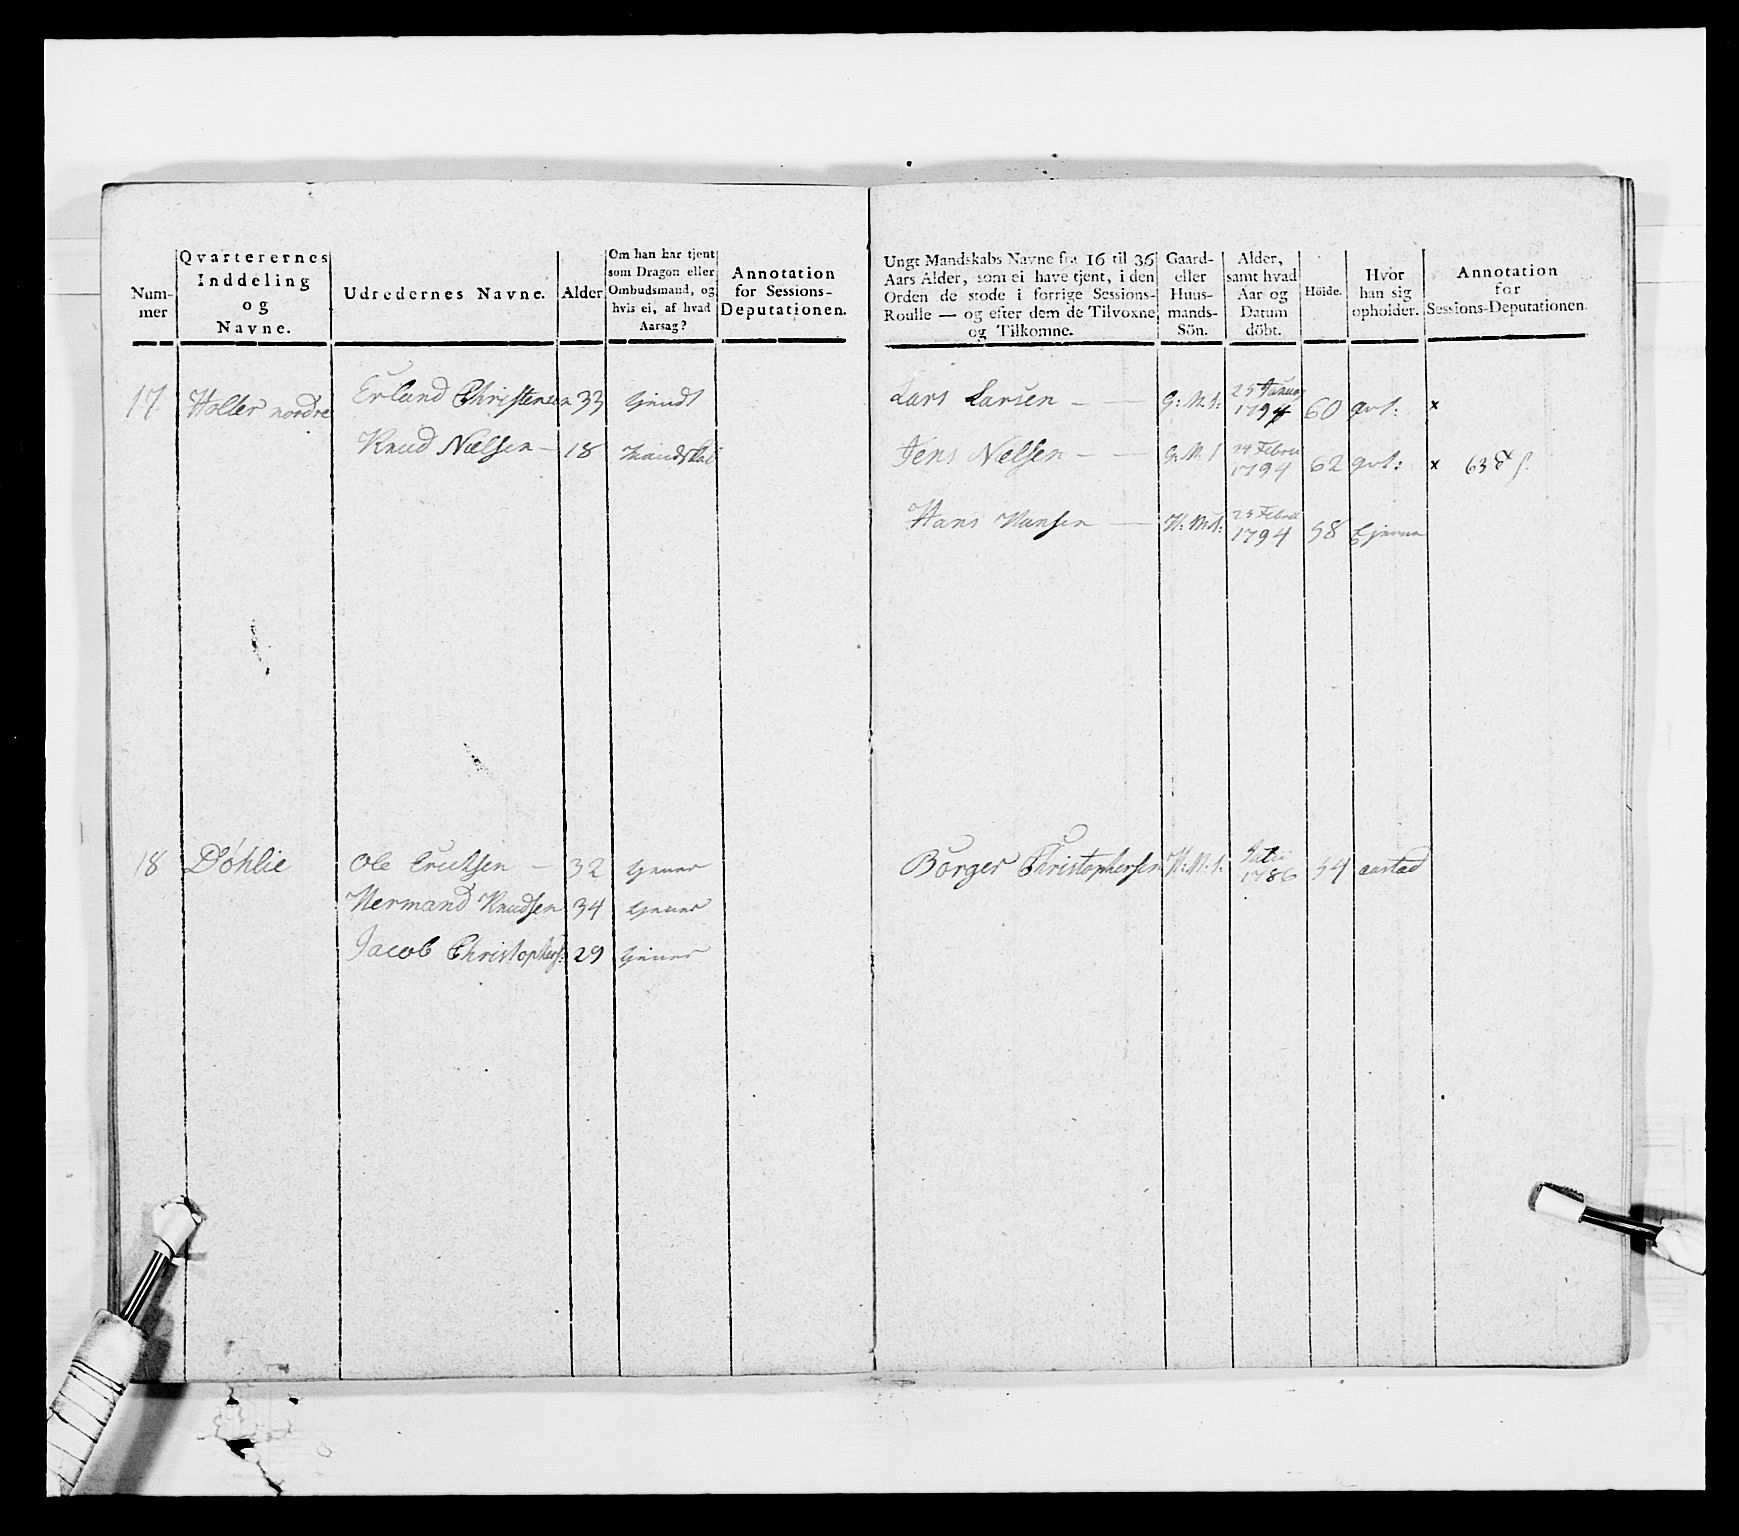 Num-
mer
Qvarterernes
Inddeling
og
Navne.
Udredernes Navne.
Alder
Om han har tjent
som Dragon eller
Ombudsmand, og
hvis ei, af hvad
Aarsag?
Annotation
for Sessions-
Deputationen.
Ungt Mandskabs Navne fra 16 til 36
Aars Alder, som ei have tjent, i den
Orden de stode i forrige Sessions-
Roulle — og efter dem de Tilvoxne
og Tilkomne.
Gaard-
eller
Huus-
mands-
Sön.
Alder,
samt hvad
Aar og
Datum
döbt.
Höide.
Hvor
han sig
opholder.
Annotation
for
Sessions-Deputationen.
17 Holter nordre Erland Christensen 33 tjendt
Knud Nielsen — 18 Mandskab
Lars Larsen — G: M: S: 25 Januar 1794 60 qvt: x
Jens Nielsen — G: M: S 24 Febru 1794 62 qvt: x 63
Hans Hansen — H: M: S: 25 Febru 1794 58
18 Döhlie Ole Ericksen — 32 tjener
Hermand Knudsen 34 tjener
Jacob Christophers: 29 tjener
Börger Christophersen H: M: S: Julii 1786 54 aastad